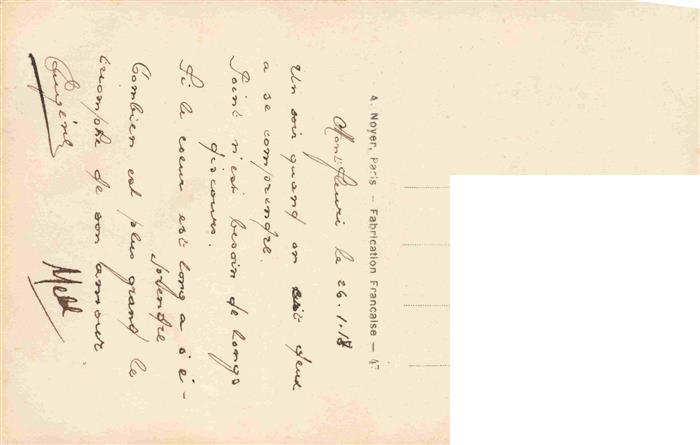 A. Noyer, Paris — Fabrication Francaise —
Montfleuri le 26.1.18
Un soir quand on est deux
a se comprendre.
Point n'est besoin de longs
discours.
Si le coeur est long a s'é-
Combien est plus grand le
triomphe de son amour
Eugène